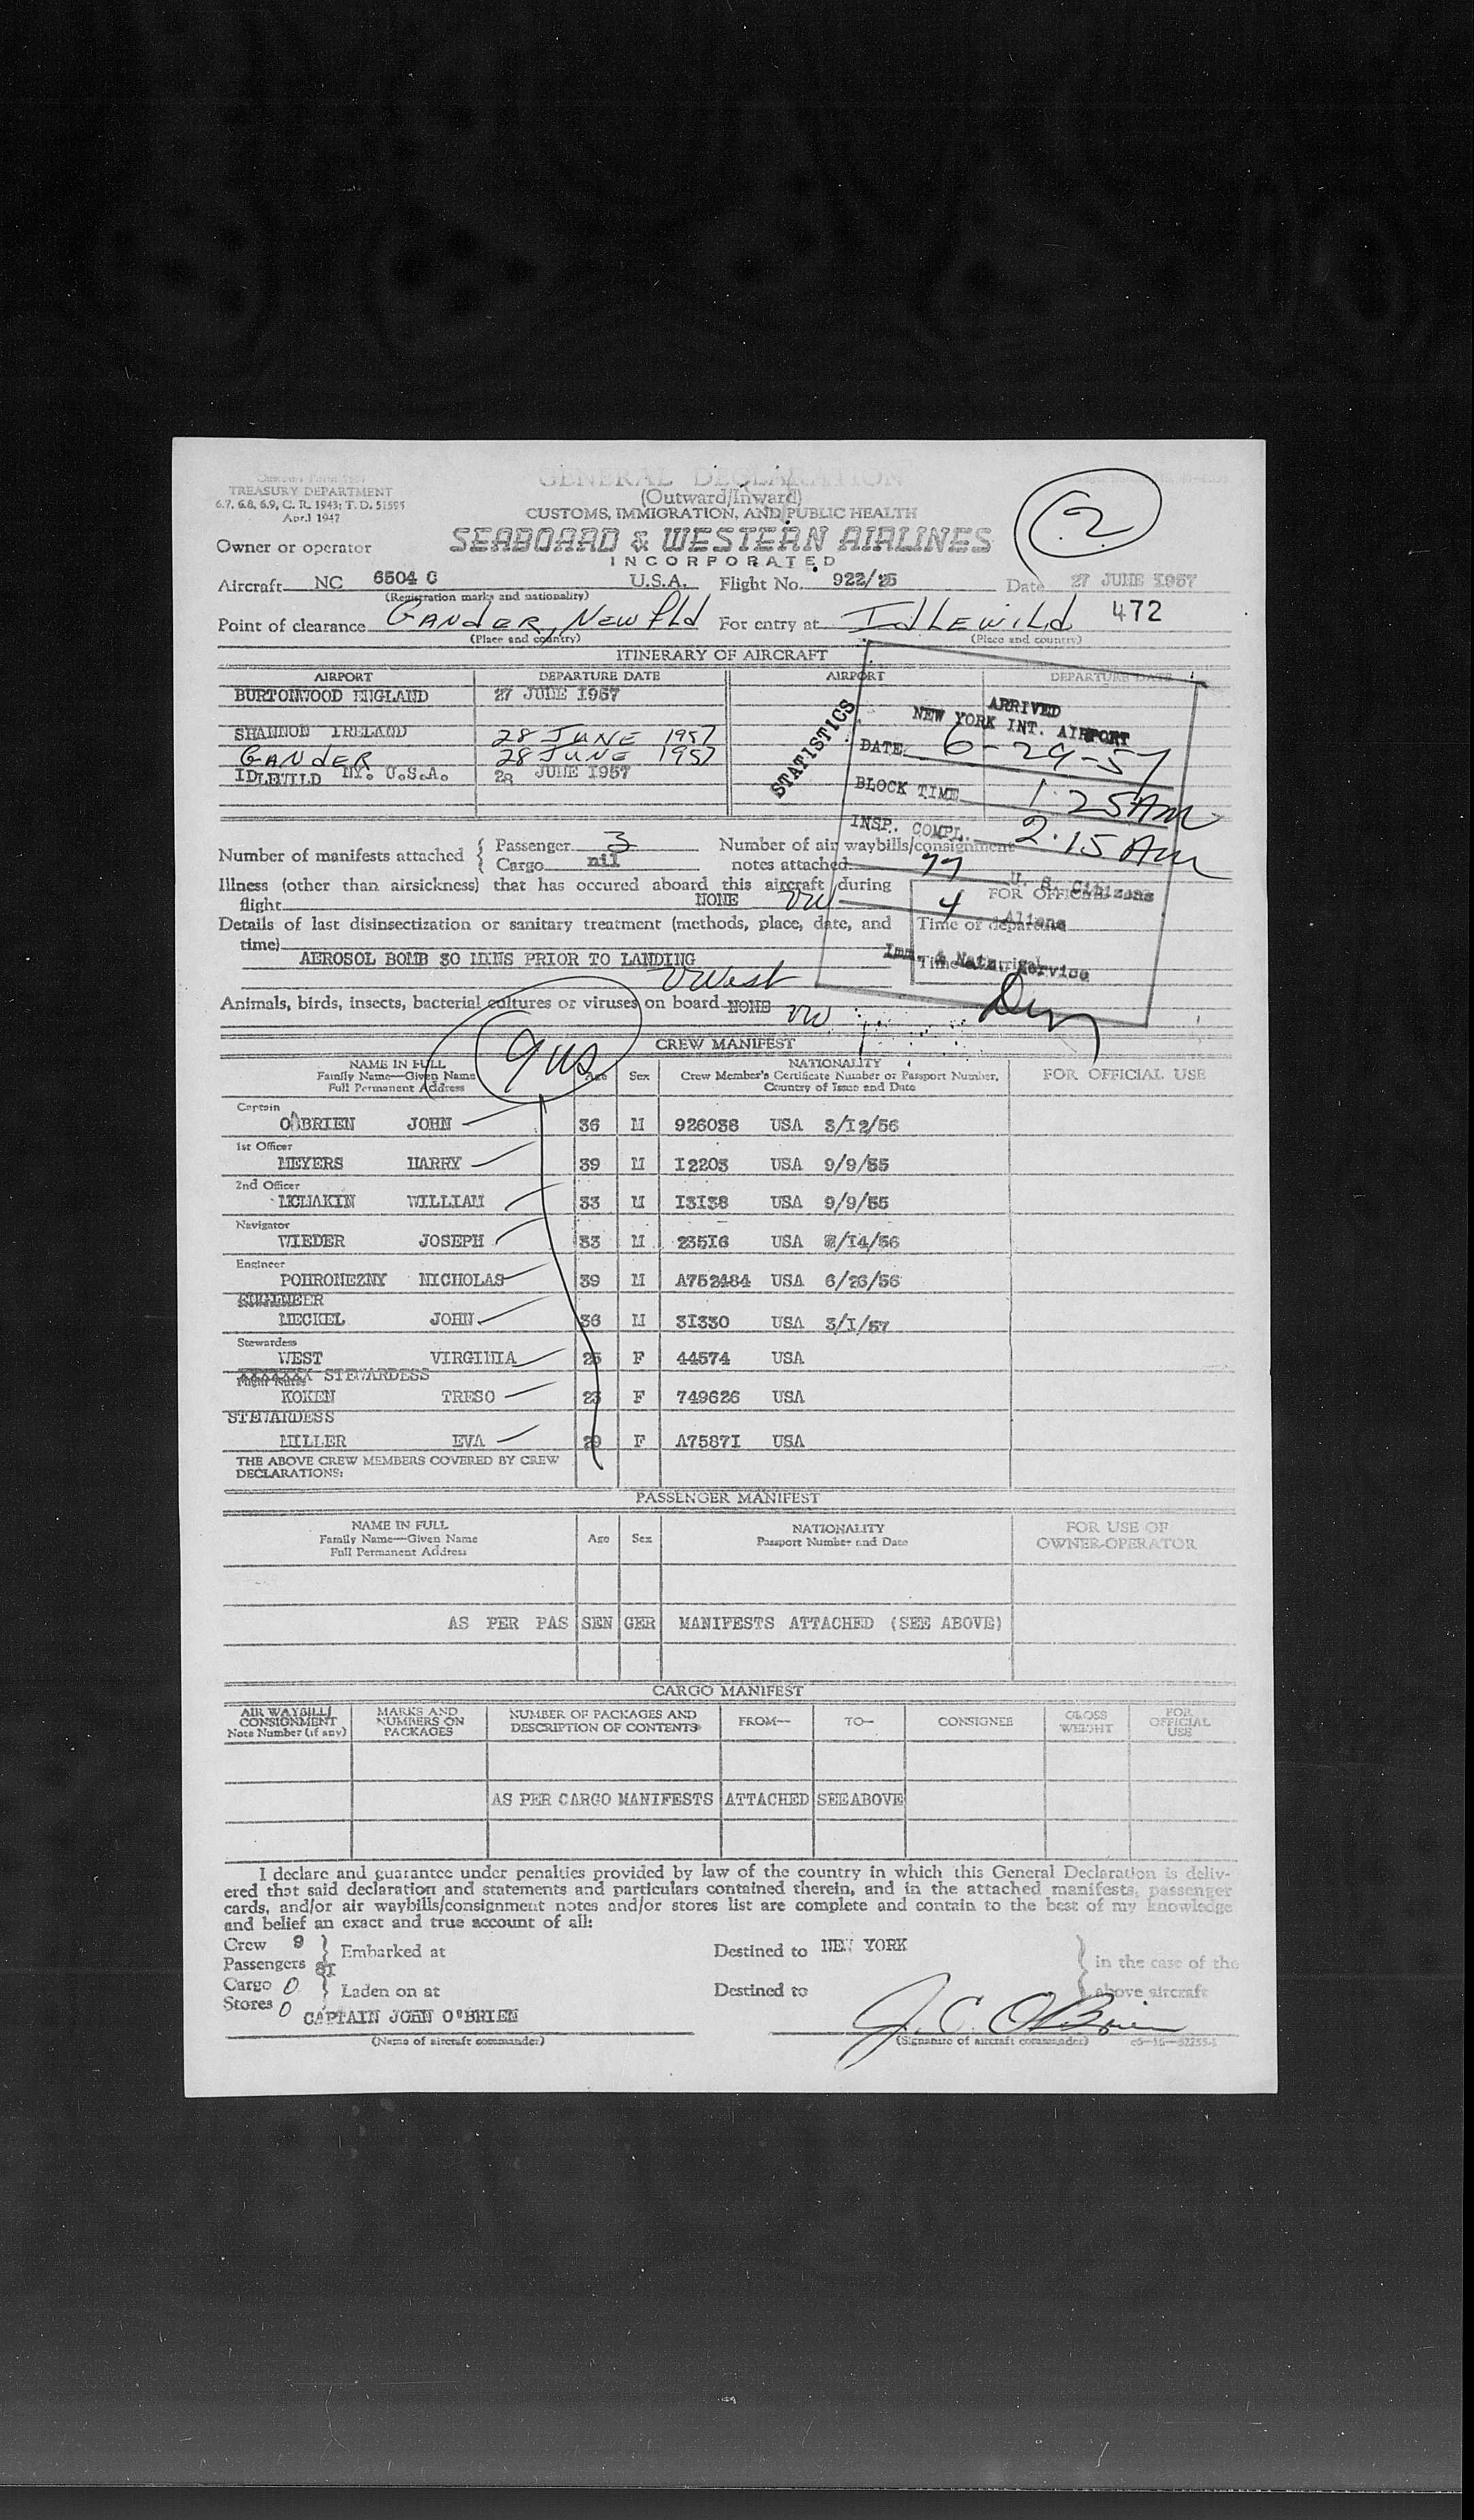 Customs Form 7507
TREASURY DEPARTMENT
6.7, 6.8, 6.9, C. R. 1943; T. D. 51595
April 1947
GENERAL DECLARATION
(Outward/Inward)
CUSTOMS, IMMIGRATION, AND PUBLIC HEALTH
2
Owner or operator SEABOARD & WESTERN AIRLINES
INCORPORATED
Aircraft NC 6504 C U.S.A. Flight No. 922/25 Date 27 JUNE 1957
(Registration marks and nationality)
Point of clearance GANDER, NEWFLD For entry at IDLEWILD 472
(Place and country) (Place and country)
ITINERARY OF AIRCRAFT
AIRPORT DEPARTURE DATE AIRPORT DEPARTURE DATE
BURTONWOOD ENGLAND 27 JUNE 1957
SHANNON IRELAND 28 JUNE 1957
GANDER 28 JUNE 1957
IDLEWILD NY. U.S.A. 28 JUNE 1957
STATISTICS
ARRIVED
NEW YORK INT. AIRPORT
DATE 6-29-57
BLOCK TIME 1:25 AM
INSP. COMPL. 2:15 AM
77 U. S. Citizens
4 Aliens
Imm. & Natz. Service
Number of manifests attached { Passenger 3
Cargo nil
Number of air waybills/consignment
notes attached
Illness (other than airsickness) that has occured aboard this aircraft during
flight NONE VW
FOR OFFICIAL
Time of departure
Time
Details of last disinsectization or sanitary treatment (methods, place, date, and
time)
AEROSOL BOMB 30 MINS PRIOR TO LANDING
VWest
Animals, birds, insects, bacterial cultures or viruses on board NONE VW
9 US
CREW MANIFEST
NAME IN FULL
Family Name—Given Name
Full Permanent Address
Age Sex
NATIONALITY
Crew Member's Certificate Number or Passport Number,
Country of Issue and Date
FOR OFFICIAL USE
Captain
O'BRIEN JOHN 36 M 926038 USA 3/12/56
1st Officer
MEYERS HARRY 39 M I2203 USA 9/9/55
2nd Officer
MCMAKIN WILLIAM 33 M I3I38 USA 9/9/55
Navigator
WIEDER JOSEPH 33 M 235I6 USA /14/56
Engineer
POHRONEZNY NICHOLAS 39 M A752484 USA 6/26/56
ENGINEER
MECKEL JOHN 36 M 3I330 USA 3/I/57
Stewardess
WEST VIRGINIA 25 F 44574 USA
XXXXXXX STEWARDESS
KOKEN TRESO 23 F 749626 USA
STEWARDESS
MILLER EVA 29 F A7587I USA
THE ABOVE CREW MEMBERS COVERED BY CREW
DECLARATIONS:
PASSENGER MANIFEST
NAME IN FULL
Family Name—Given Name
Full Permanent Address
Age Sex
NATIONALITY
Passport Number and Date
FOR USE OF
OWNER-OPERATOR
AS PER PAS SEN GER MANIFESTS ATTACHED (SEE ABOVE)
CARGO MANIFEST
AIR WAYBILL/
CONSIGNMENT
Note Number (if any)
MARKS AND
NUMBERS ON
PACKAGES
NUMBER OF PACKAGES AND
DESCRIPTION OF CONTENTS
FROM— TO— CONSIGNEE
GROSS
WEIGHT
FOR
OFFICIAL
USE
AS PER CARGO MANIFESTS ATTACHED SEE ABOVE
I declare and guarantee under penalties provided by law of the country in which this General Declaration is deliv-
ered that said declaration and statements and particulars contained therein, and in the attached manifests, passenger
cards, and/or air waybills/consignment notes and/or stores list are complete and contain to the best of my knowledge
and belief an exact and true account of all:
Crew 9 } Embarked at Destined to NEW YORK
Passengers 8I
in the case of the
Cargo 0 } Laden on at Destined to above aircraft
Stores 0
CAPTAIN JOHN O'BRIEN J. C. O'Brien
(Name of aircraft commander) (Signature of aircraft commander)